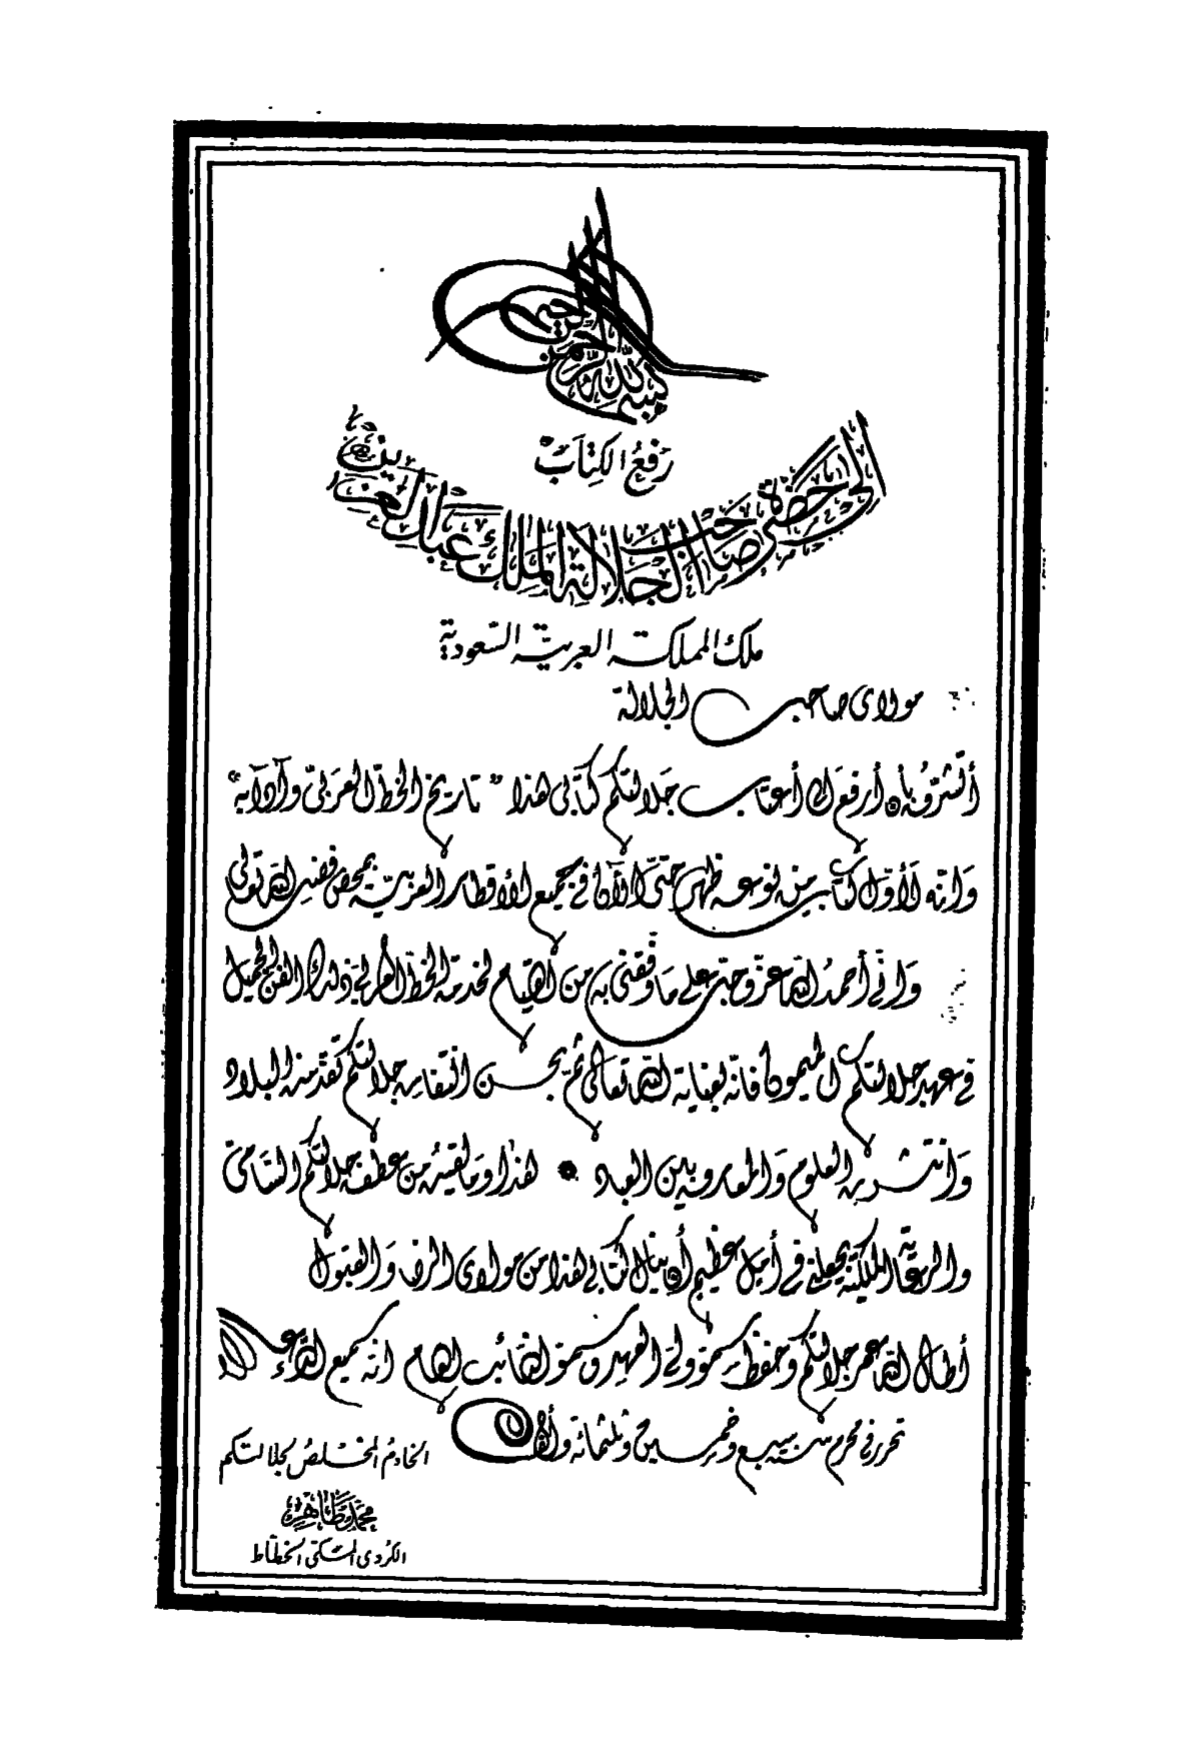 بسم الله الرحمن الرحيم
رفع الكتاب
إلى حضرة صاحب الجلالة الملك عبد العزيز
ملك المملكة العربية السعودية
مولاى صاحب الجلالة
أتشرف بأن أرفع الى أعتاب جلالتكم كتابى هذا " تاريخ الخط العربى وآدابه "
وانه لأول كتاب من نوعه ظهر حتى الآن في جميع الأقطار العربية بمحض فضل الله تعالى
وانى أحمد الله عز وجل على ما وفقنى به من القيام لخدمة الخط العربي ذلك الفن الجميل
في عهد جلالتكم الميمون فانه بعناية الله تعالى ثم بحسن التفات جلالتكم تقدمت البلاد
وانتشرت العلوم والمعارف بين العباد * هذا وما لقيته من عطف جلالتكم السامى
والرعاية الملكية يجعلنى في أمل عظيم أن ينال كتابى هذا من مولاى الرضا والقبول
أطال الله عمر جلالتكم وحفظ سمو ولي العهد وسمو النائب العام انه سميع الدعاء
تحرر في محرم سنة سبع وخمسين وثلثمائة وألف
الخادم المخلص لجلالتكم
محمد طاهر
الكردى المكى الخطاط